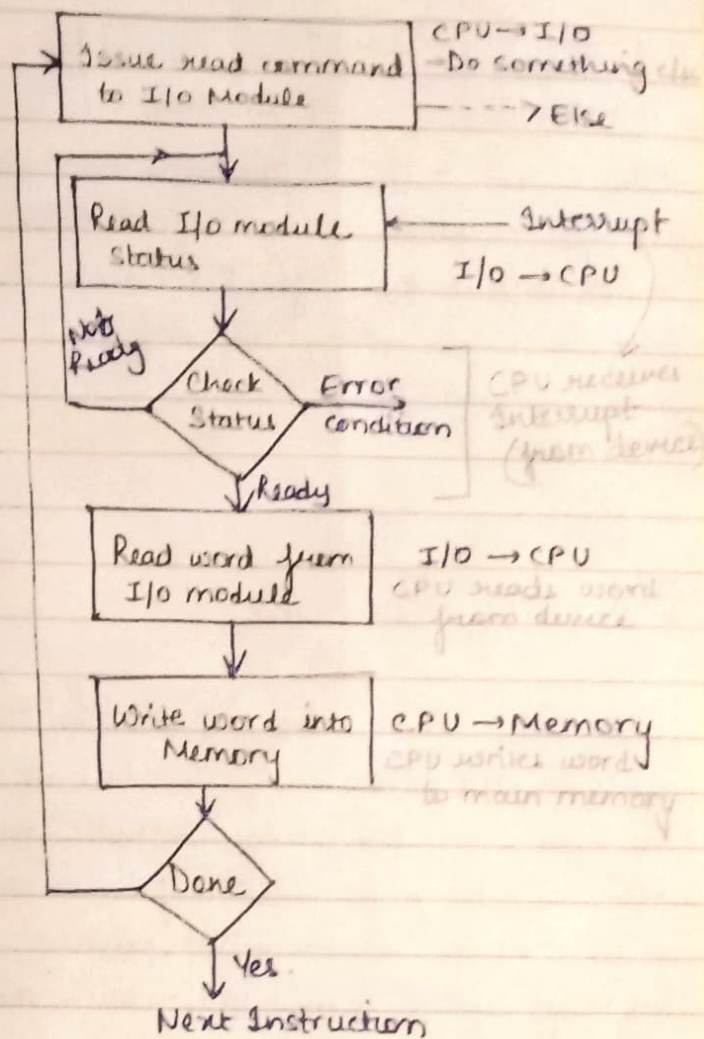 Issue read command
to I/O Module
CPU → I/O
-Do something else
----> Else
Read I/o module
Status
Interrupt
I/O → CPU
Not
Ready
Check
Status
Error
condition
CPU receives
Interrupt
(from device)
Ready
Read word from
I/O module
I/O → CPU
CPU reads word
from device
Write word into
Memory
CPU → Memory
CPU writes word
to main memory
Done
Yes
Next Instruction